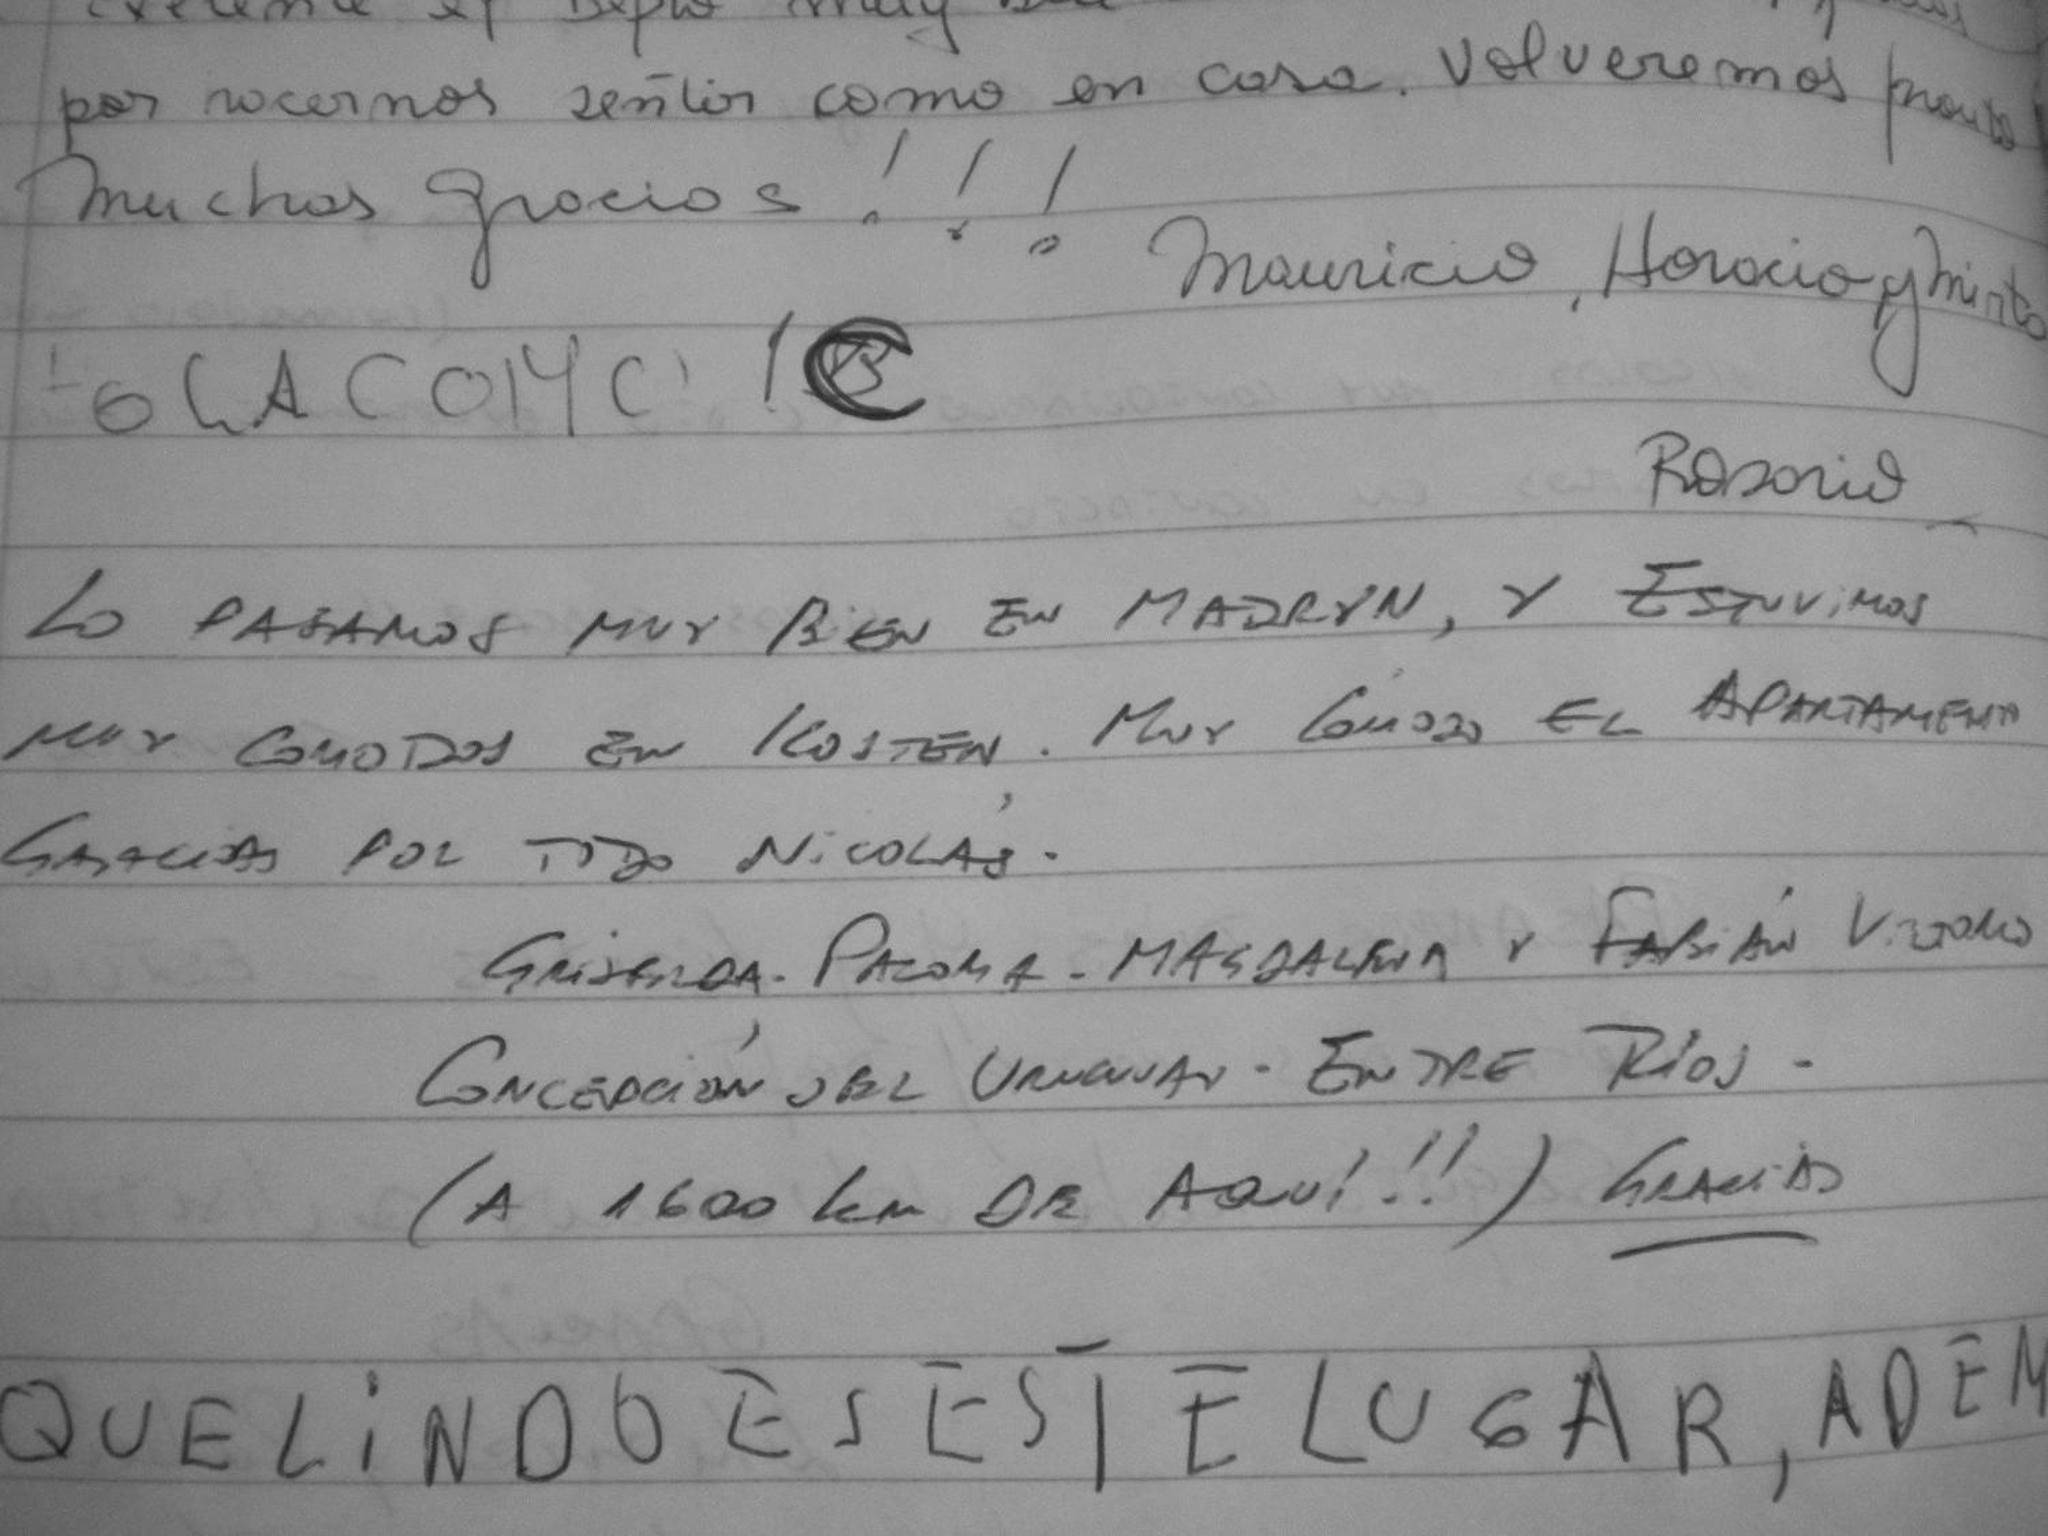 el Depto muy
por hacernos sentir como en casa. Volveremos pronto
Muchas gracias!!!
Mauricio, Horacio y Mirta
Rosario
LO PASAMOS MUY BIEN EN MADRYN, Y ESTUVIMOS
MUY COMODOS EN KOSTEN. MUY CÓMODO EL APARTAMENTO
GRACIAS POR TODO NICOLÁS.
GRISELDA. PALOMA. MAGDALENA Y FABIÁN
CONCEPCIÓN DEL URUGUAY. ENTRE RÍOS.
(A 1600 km DE AQUÍ!!!) GRACIAS
QUE LiNDO ES ESTE LUGAR, ADEM